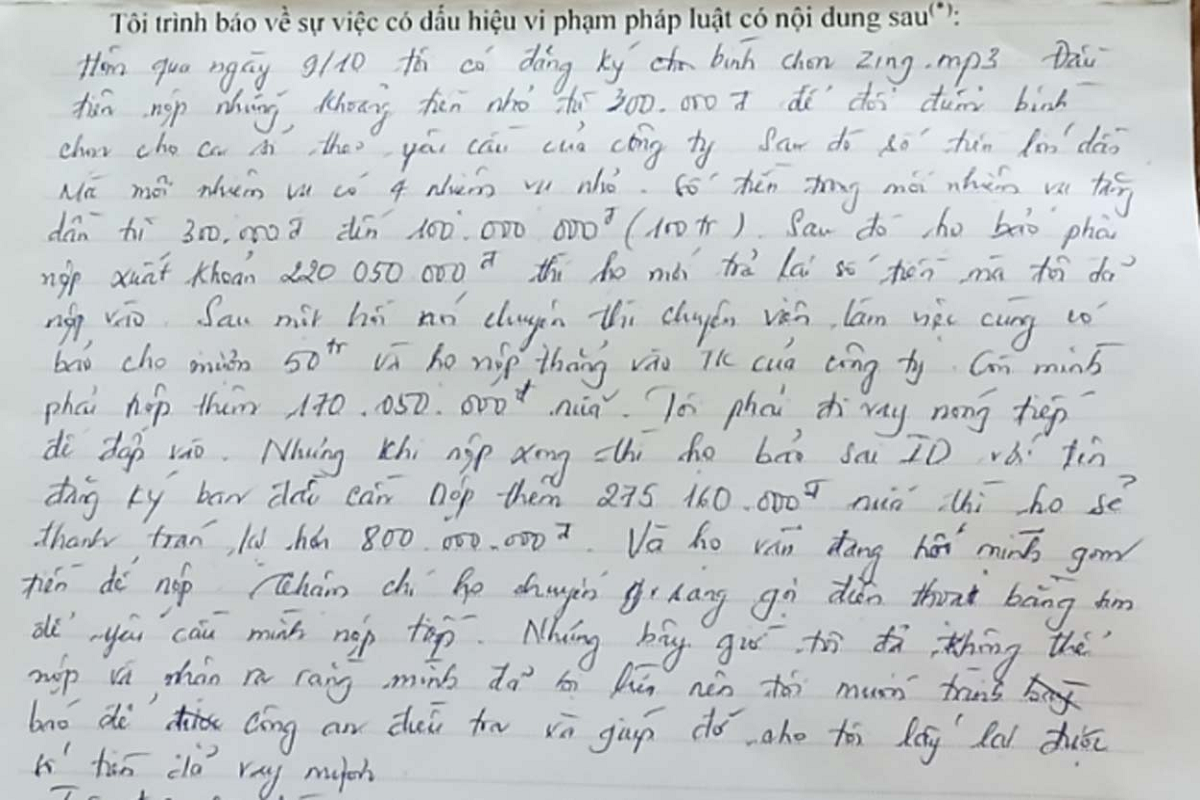 Tôi trình báo về sự việc có dấu hiệu vi phạm pháp luật có nội dung sau(*):
Hôm qua ngày 9/10 tôi có đăng ký bình chọn zing.mp3 Đầu
tiên nộp những khoảng tiền nhỏ từ 300.000đ để đổi điểm bình
chọn cho ca sĩ theo yêu cầu của công ty Sau đó số tiền lớn dần
Mà mỗi nhiệm vụ có 4 nhiệm vụ nhỏ. Số tiền trong mỗi nhiệm vụ tăng
dần từ 300.000đ đến 100.000 000đ (100tr). Sau đó họ bảo phải
nộp xuất khoản 220 050 000đ thì họ mới trả lại số tiền mà tôi đã
nộp vào. Sau một hồi nói chuyện thì chuyên viên làm việc cùng có
bảo cho mượn 50tr và họ nộp thẳng vào TK của công ty. Còn mình
phải nộp thêm 170.050.000đ nữa. Tôi phải đi vay nóng tiếp
để đắp vào. Nhưng khi nộp xong thì họ bảo sai ID với tên
đăng ký ban đầu cần nộp thêm 275 160.000đ nữa thì họ sẽ
thanh toán lại hơn 800.000.000đ. Và họ vẫn đang hối mình gom
tiền để nộp. Thậm chí họ chuyển sang gọi điện thoại bằng
để yêu cầu mình nộp tiếp. Nhưng bây giờ tôi đã không thể
nộp và nhận ra rằng mình đã bị lừa nên tôi muốn trình
báo để được công an điều tra và giúp đỡ cho tôi lấy lại được
số tiền đã vay mượn